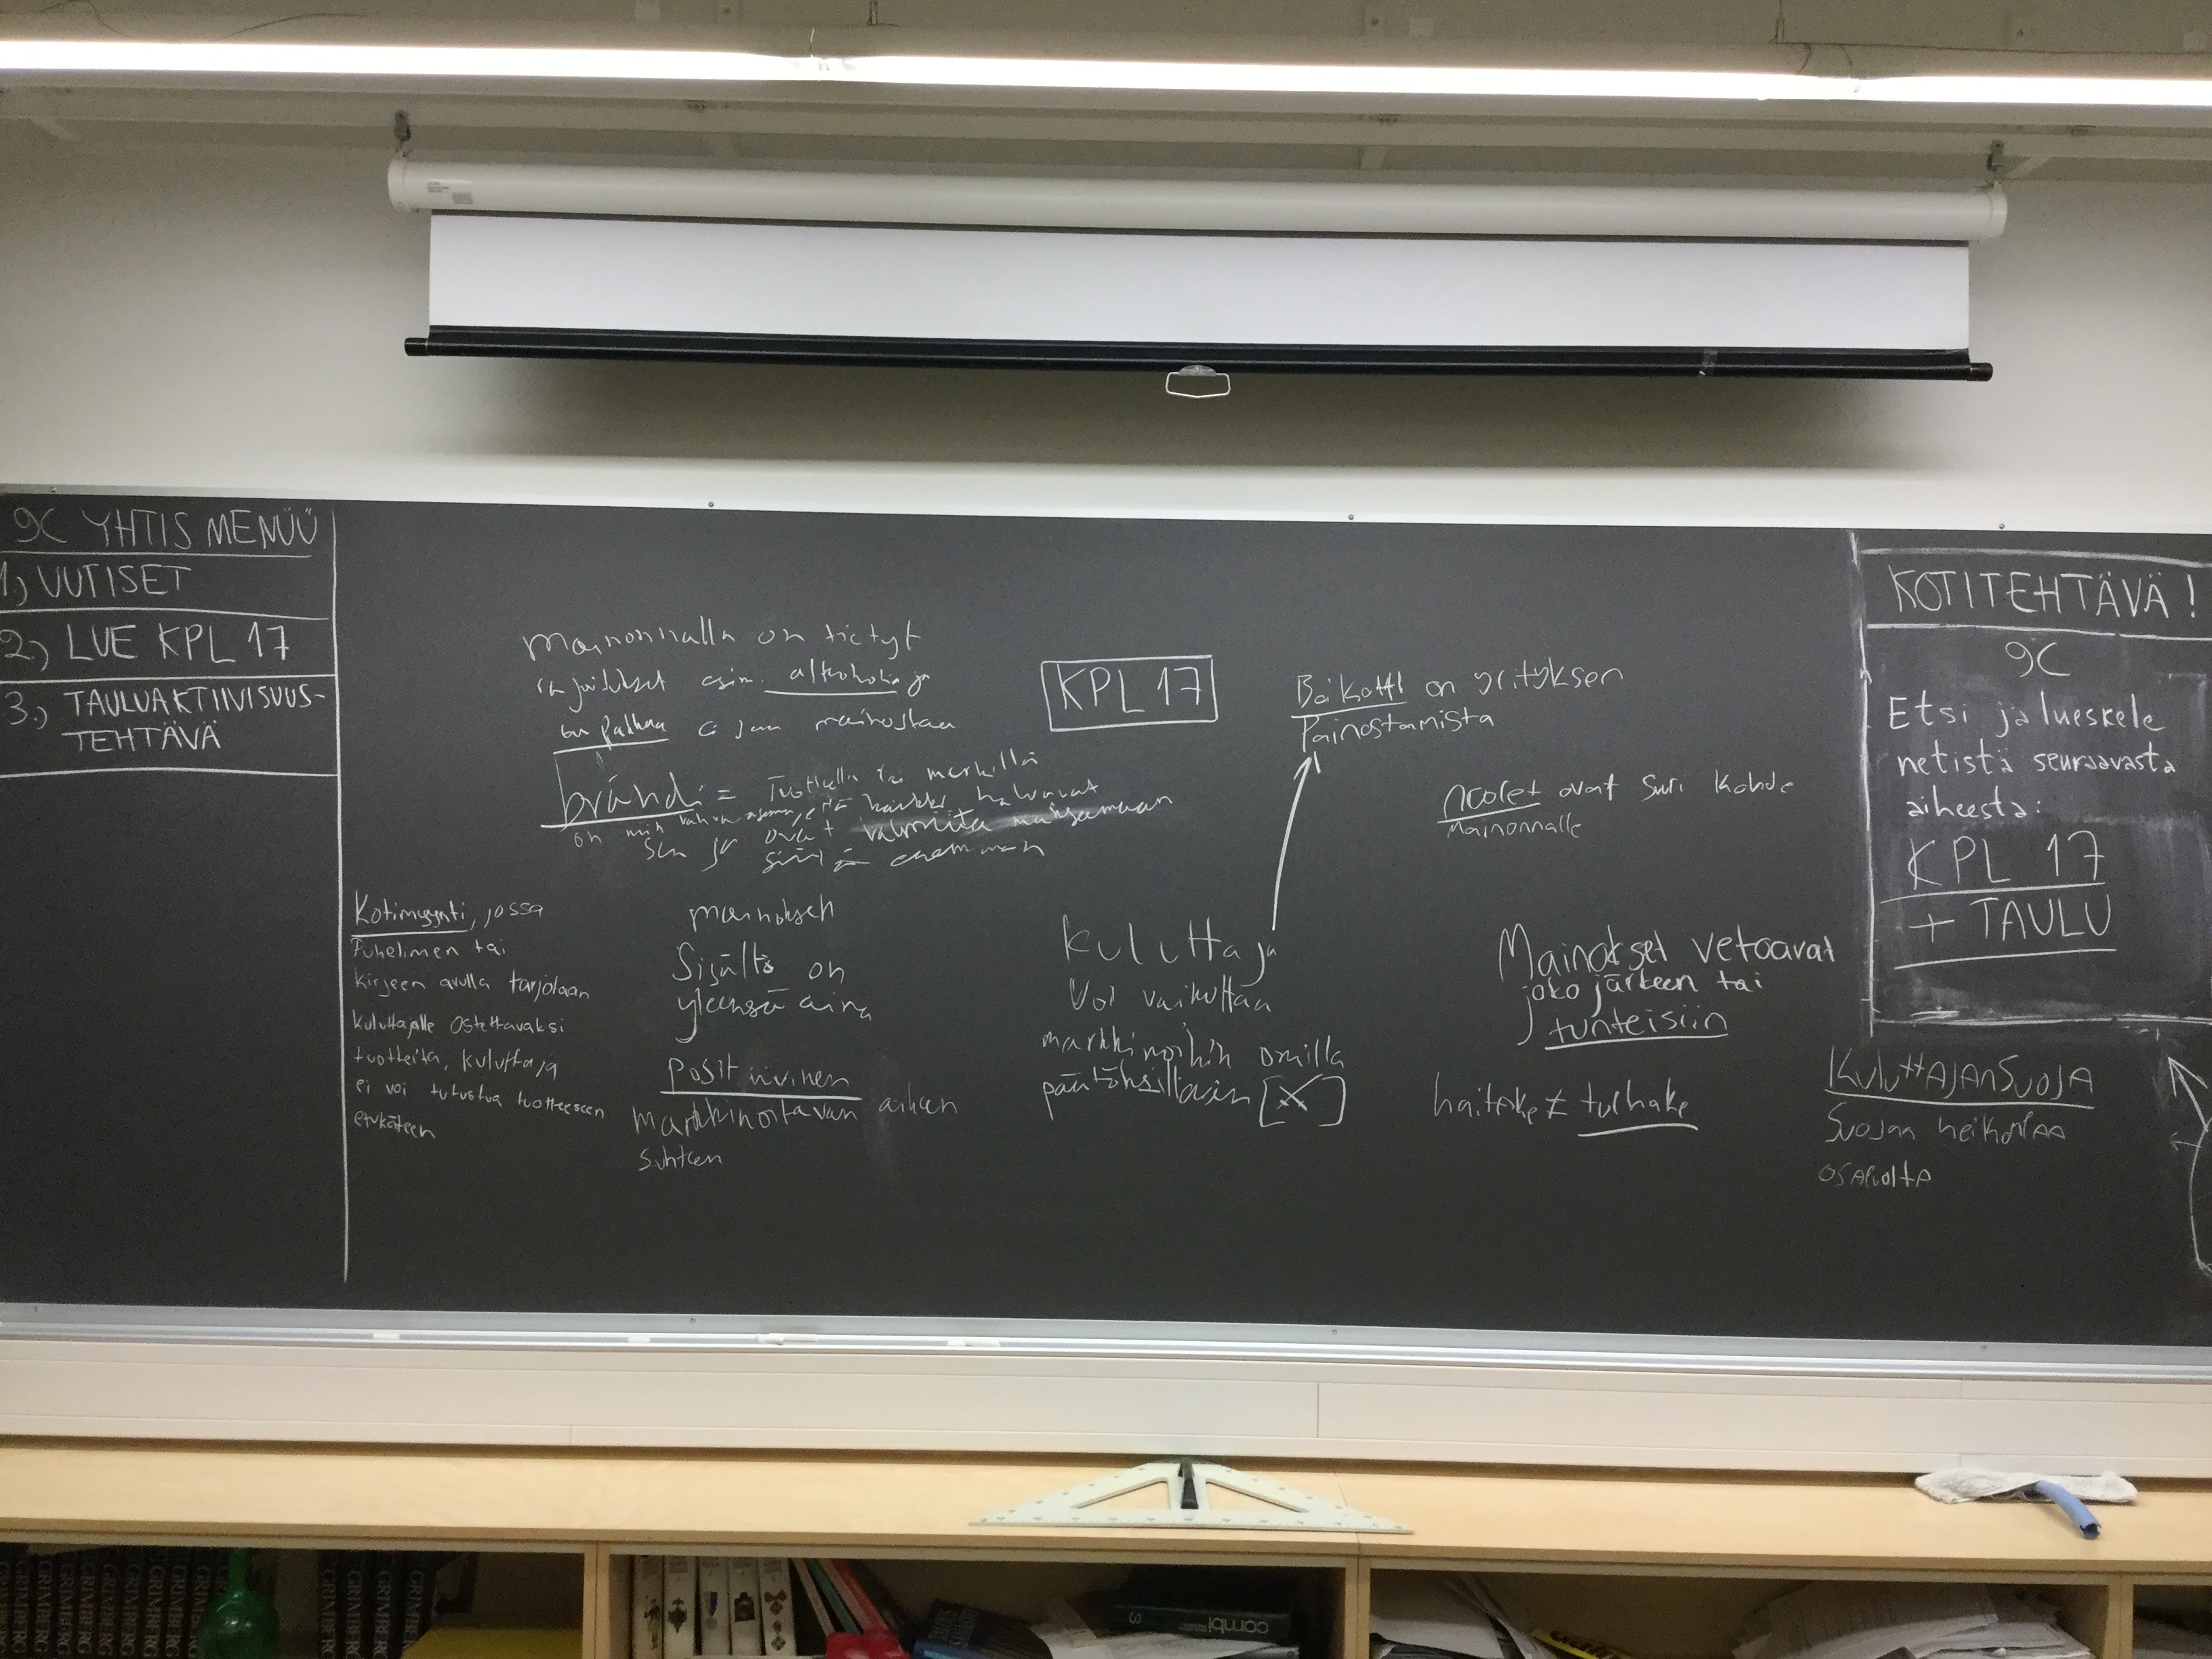 9C YHTIS MENÜÜ
1.) UUTISET
2.) LUE KPL 17
3.) TAULUAKTIIVISUUS-
TEHTÄVÄ
mainonnalla on tietyt
rajoitukset esim. alkoholia ja
tupakkaa ei saa mainostaa
brändi = Tuotteella tai merkillä
on niin vahva asema, että kaikki haluavat
sen ja ovat valmiita maksamaan
siitä enemmän
KPL 17
Boikotti on yrityksen
Painostamista
nuoret ovat suri kohde
mainonnalle
Kotimyynti, jossa
Puhelimen tai
kirjeen avulla tarjotaan
kuluttajalle ostettavaksi
tuotteita, kuluttaja
ei voi tutustua tuotteeseen
etukäteen
mainoksen
Sisältö on
yleensä aina
positiivinen
markkinoitavan
suhteen
kuluttaja
voi vaikuttaa
markkinoihin omilla
päätöksillään
Mainokset vetoavat
joko järkeen tai
tunteisiin
haitake ≠ turhake
KuluttAJANSUOJA
Suojaa heikompaa
osapuolta
KOTITEHTÄVÄ!
9C
Etsi ja lueskele
netistä seuraavasta
aiheesta:
KPL 17
+ TAULU
GRIMBERG
GRIMBERG
GRIMBERG
GRIMBERG
GRIMBERG
GRIMBERG
GRIMBERG
GRIMBERG
combi 3